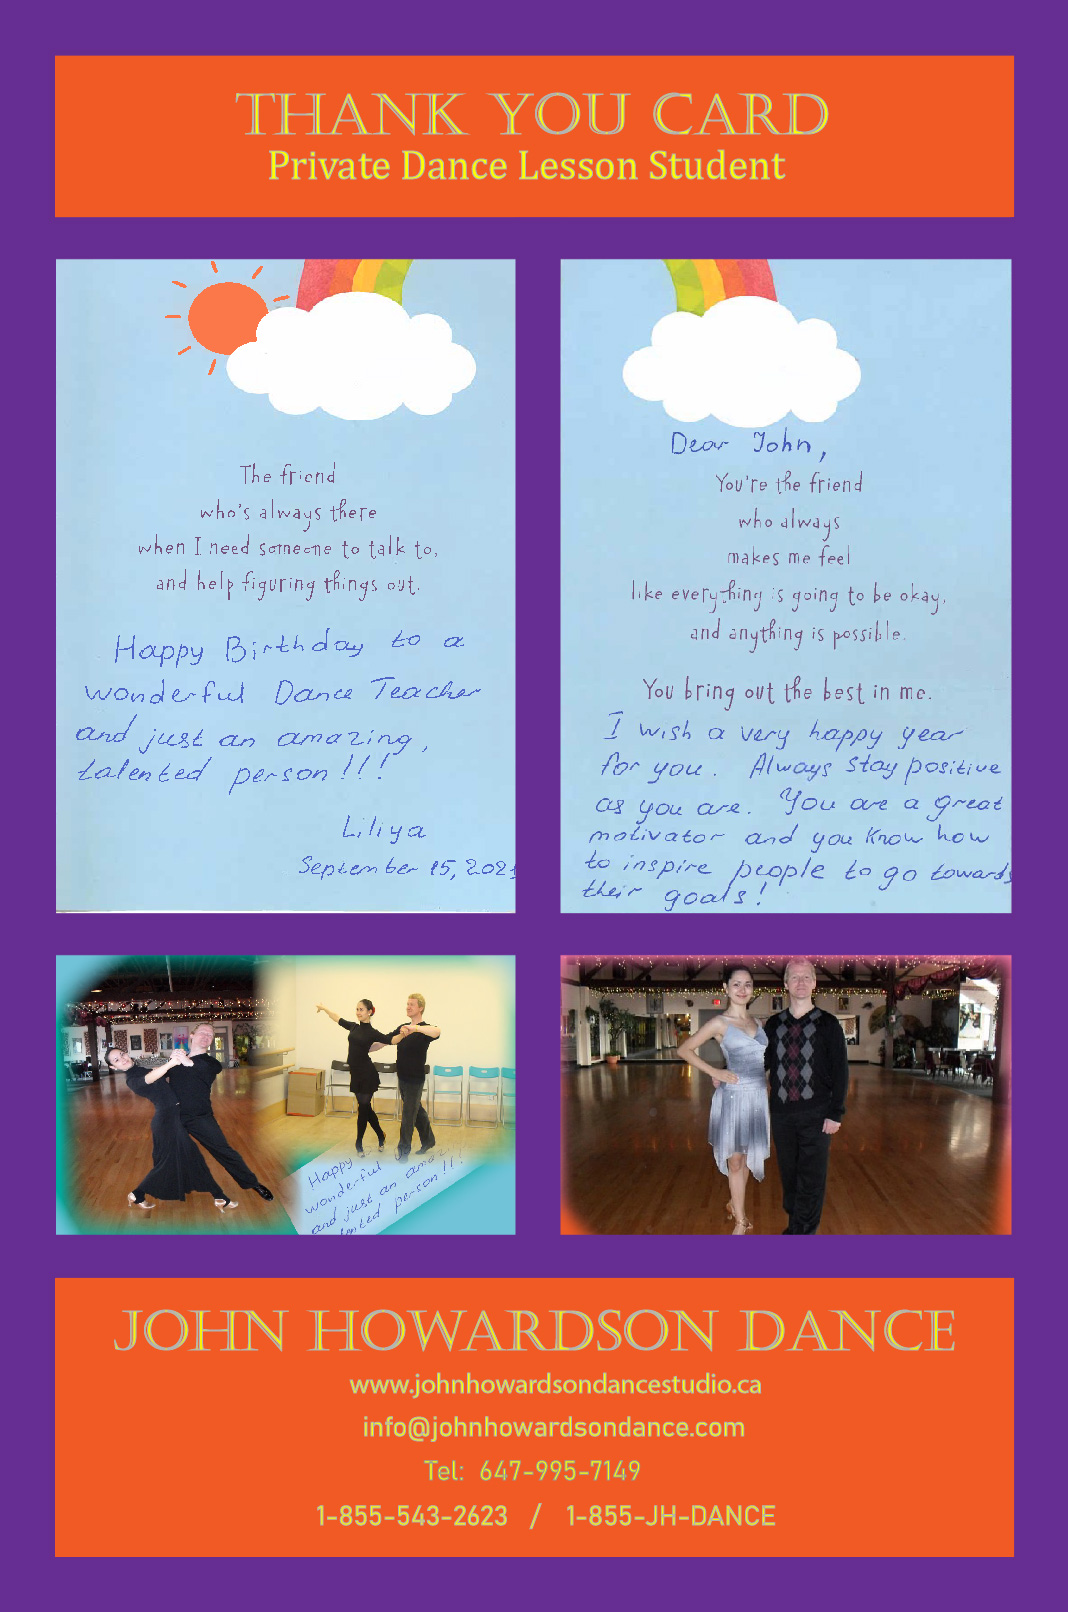 THANK YOU CARD
Private Dance Lesson Student
The friend
who's always there
when I need someone to talk to,
and help figuring things out.
Happy Birthday to a
wonderful Dance Teacher
and just an amazing,
talented person!!!
Liliya
September 15, 2021
Dear John,
You're the friend
who always
makes me feel
like everything is going to be okay,
and anything is possible.
You bring out the best in me.
I wish a very happy year
for you. Always stay positive
as you are. You are a great
motivator and you know how
to inspire people to go towards
their goals!
Happy
wonderful
and just an amaz
ented person!!!
JOHN HOWARDSON DANCE
www.johnhowardsondancestudio.ca
info@johnhowardsondance.com
Tel: 647-995-7149
1-855-543-2623 / 1-855-JH-DANCE